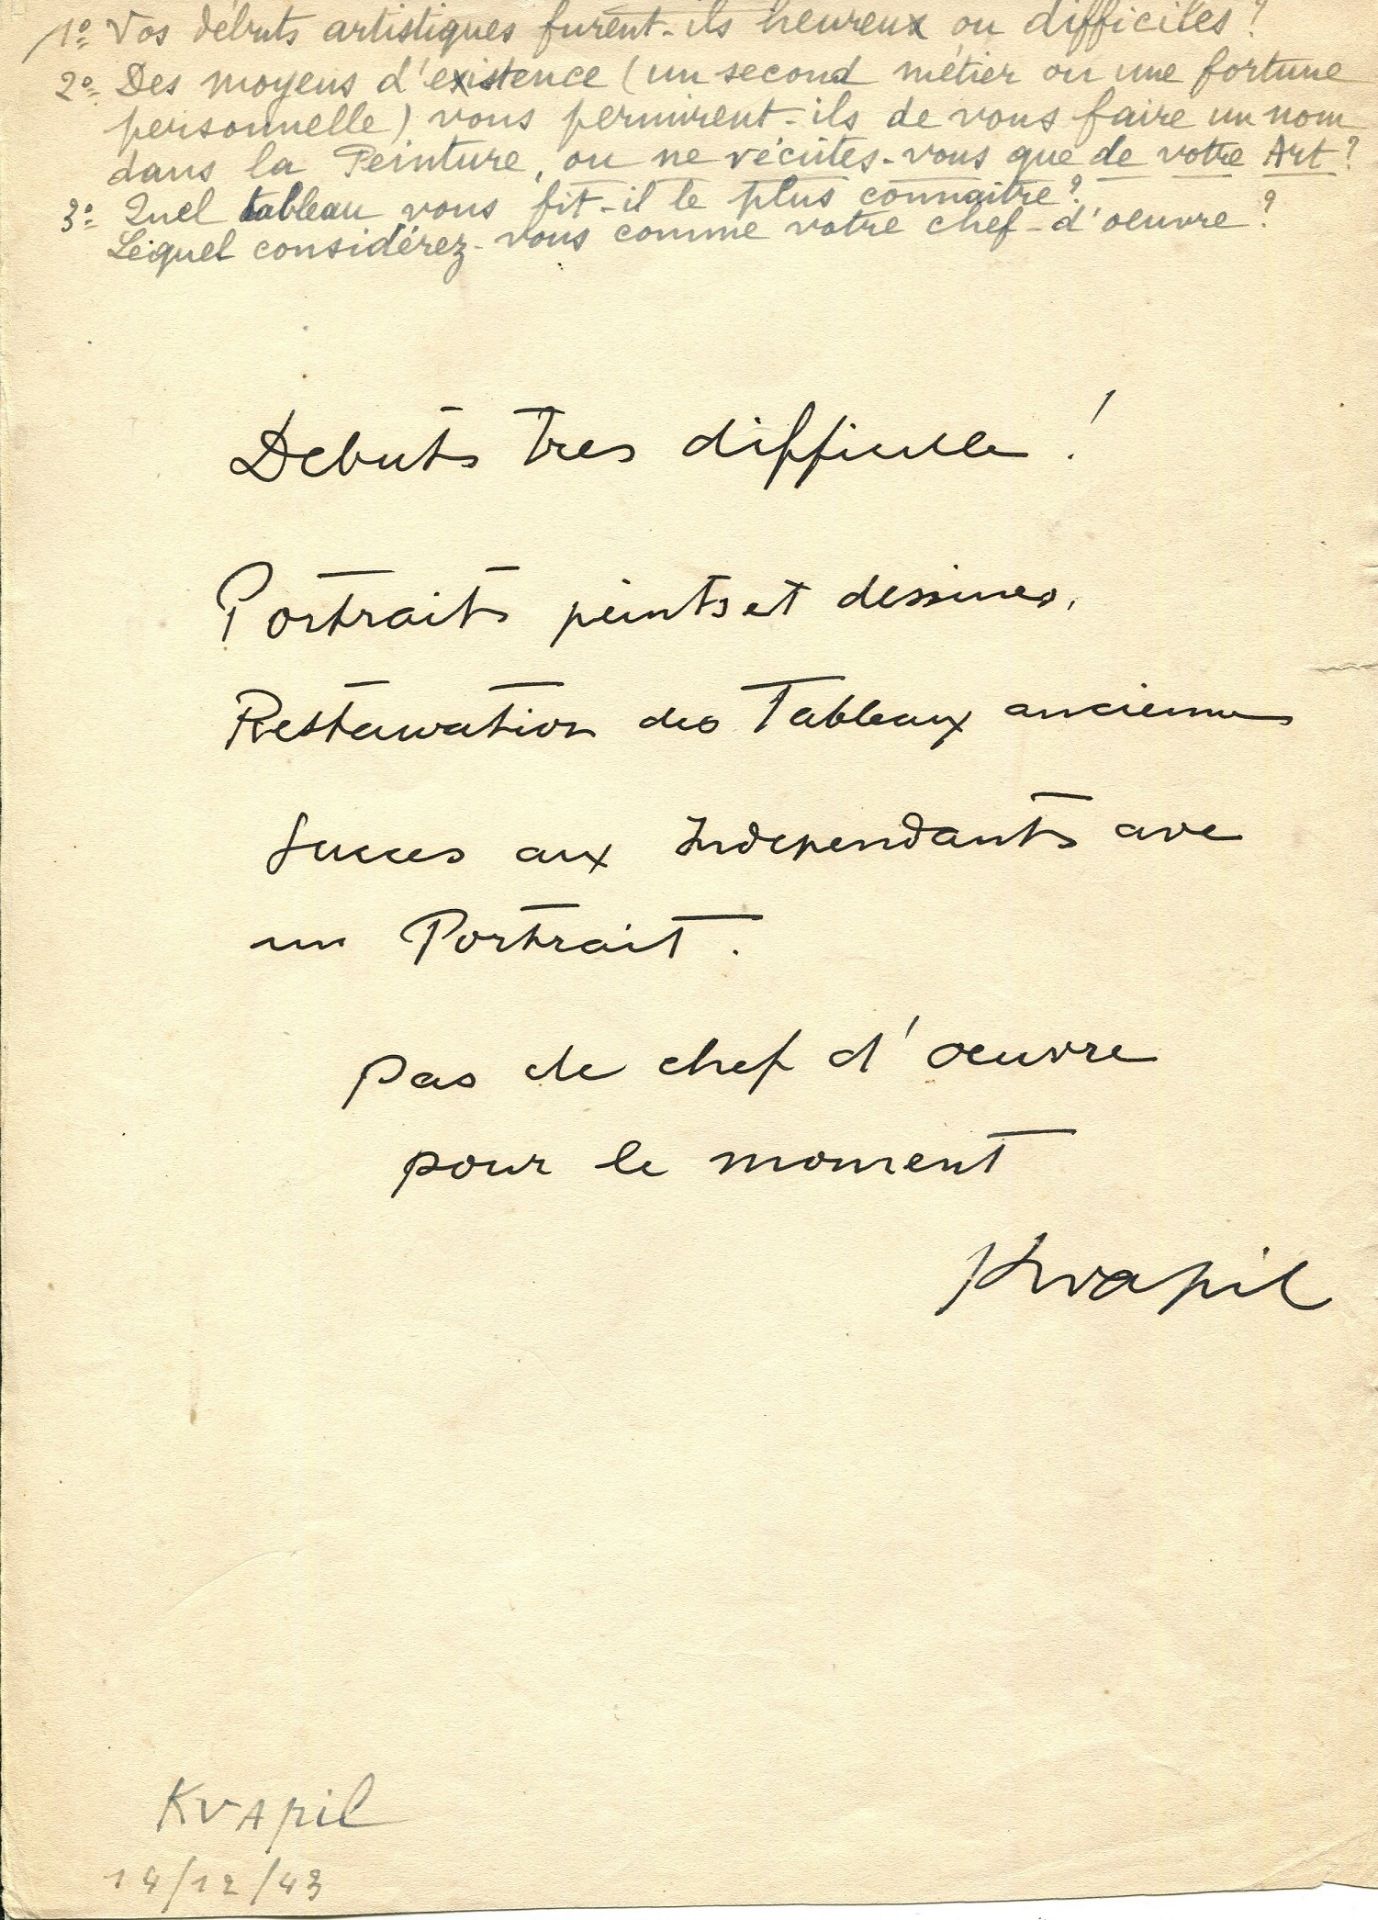 1º Vos débuts artistiques furent-ils heureux ou difficiles ?
2º Des moyens d'existence (un second métier ou une fortune
personnelle) vous permirent-ils de vous faire un nom
dans la Peinture, ou ne vécûtes-vous que de votre Art ?
3º Quel tableau vous fit-il le plus connaître ?
Lequel considérez-vous comme votre chef-d'oeuvre ?
Debuts tres difficile !
Portraits peints et dessines.
Restauration des Tableaux anciennes
Succes aux Independants ave
un Portrait.
Pas de chef d'oeuvre
pour le moment
Kvapil
Kvapil
14/12/43